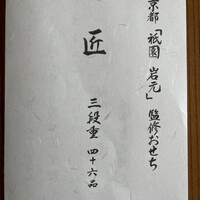 京都「祇園 岩元」監修おせち
匠
三段重 四十六品